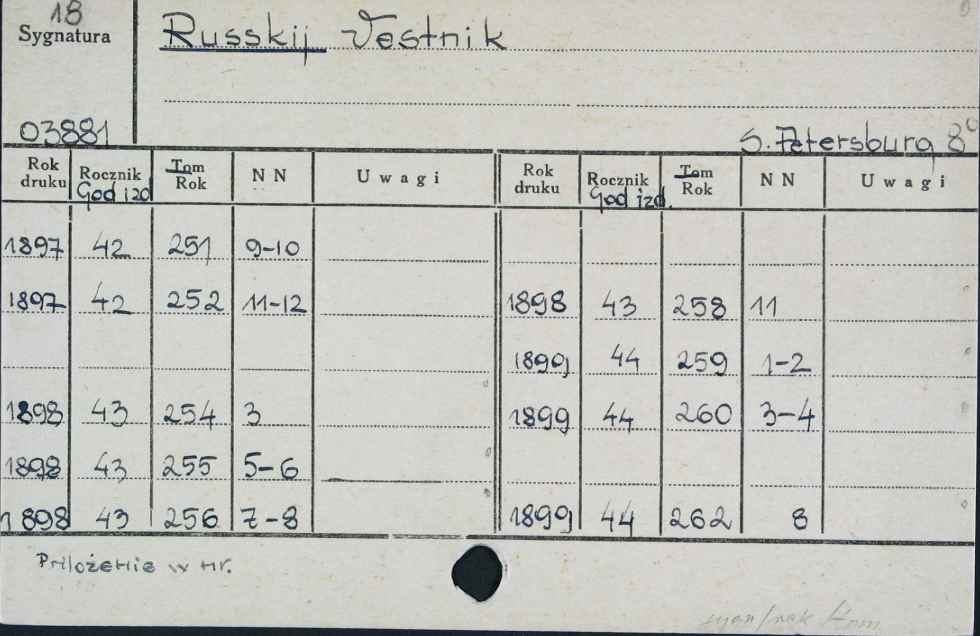 18
Sygnatura
Russkij Vestnik
03881
S. Petersburg 8°
Rok druku Rocznik God izd Tom Rok NN Uwagi
1897 42 251 9-10
1897 42 252 11-12
1898 43 254 3
1898 43 255 5-6
1898 43 256 7-8
Rok druku Rocznik God izd. Tom Rok NN Uwagi
1898 43 258 11
1899 44 259 1-2
1899 44 260 3-4
1899 44 262 8
Priloženie w nr.